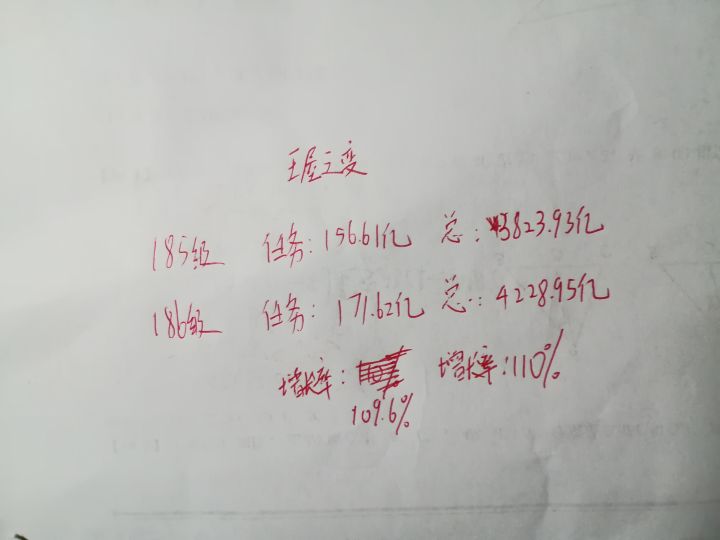 王屋之变
185级 任务:156.61亿 总:3823.93亿
186级 任务:171.62亿 总:4228.95亿
增长率: 增长率:110%
109.6%